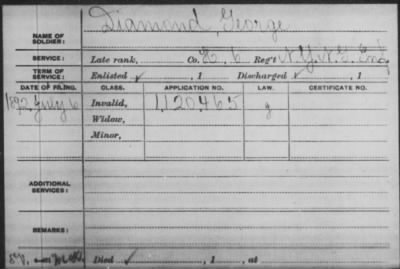 Diamond, George
NAME OF SOLDIER:
SERVICE: Late rank, Co. E, 6 Reg't N.Y. N.G. Inf
TERM OF SERVICE: Enlisted , 1 Discharged , 1
DATE OF FILING. CLASS. APPLICATION NO. LAW. CERTIFICATE NO.
1892 July 6 Invalid, 1120465 g
Widow,
Minor,
ADDITIONAL SERVICES:
REMARKS:
Died , 1 , at